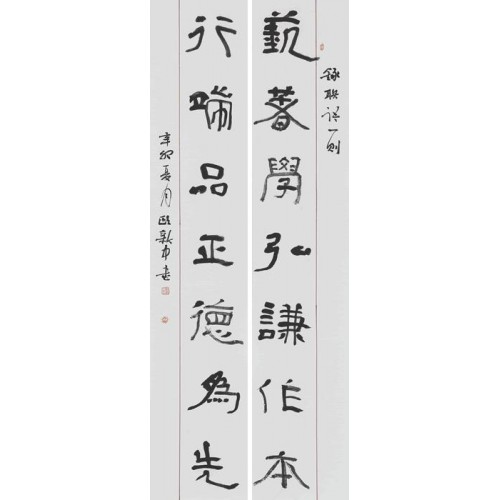 錄聯語一則
藝著學弘謙作本
行端品正德為先
辛卯夏月歐新中書